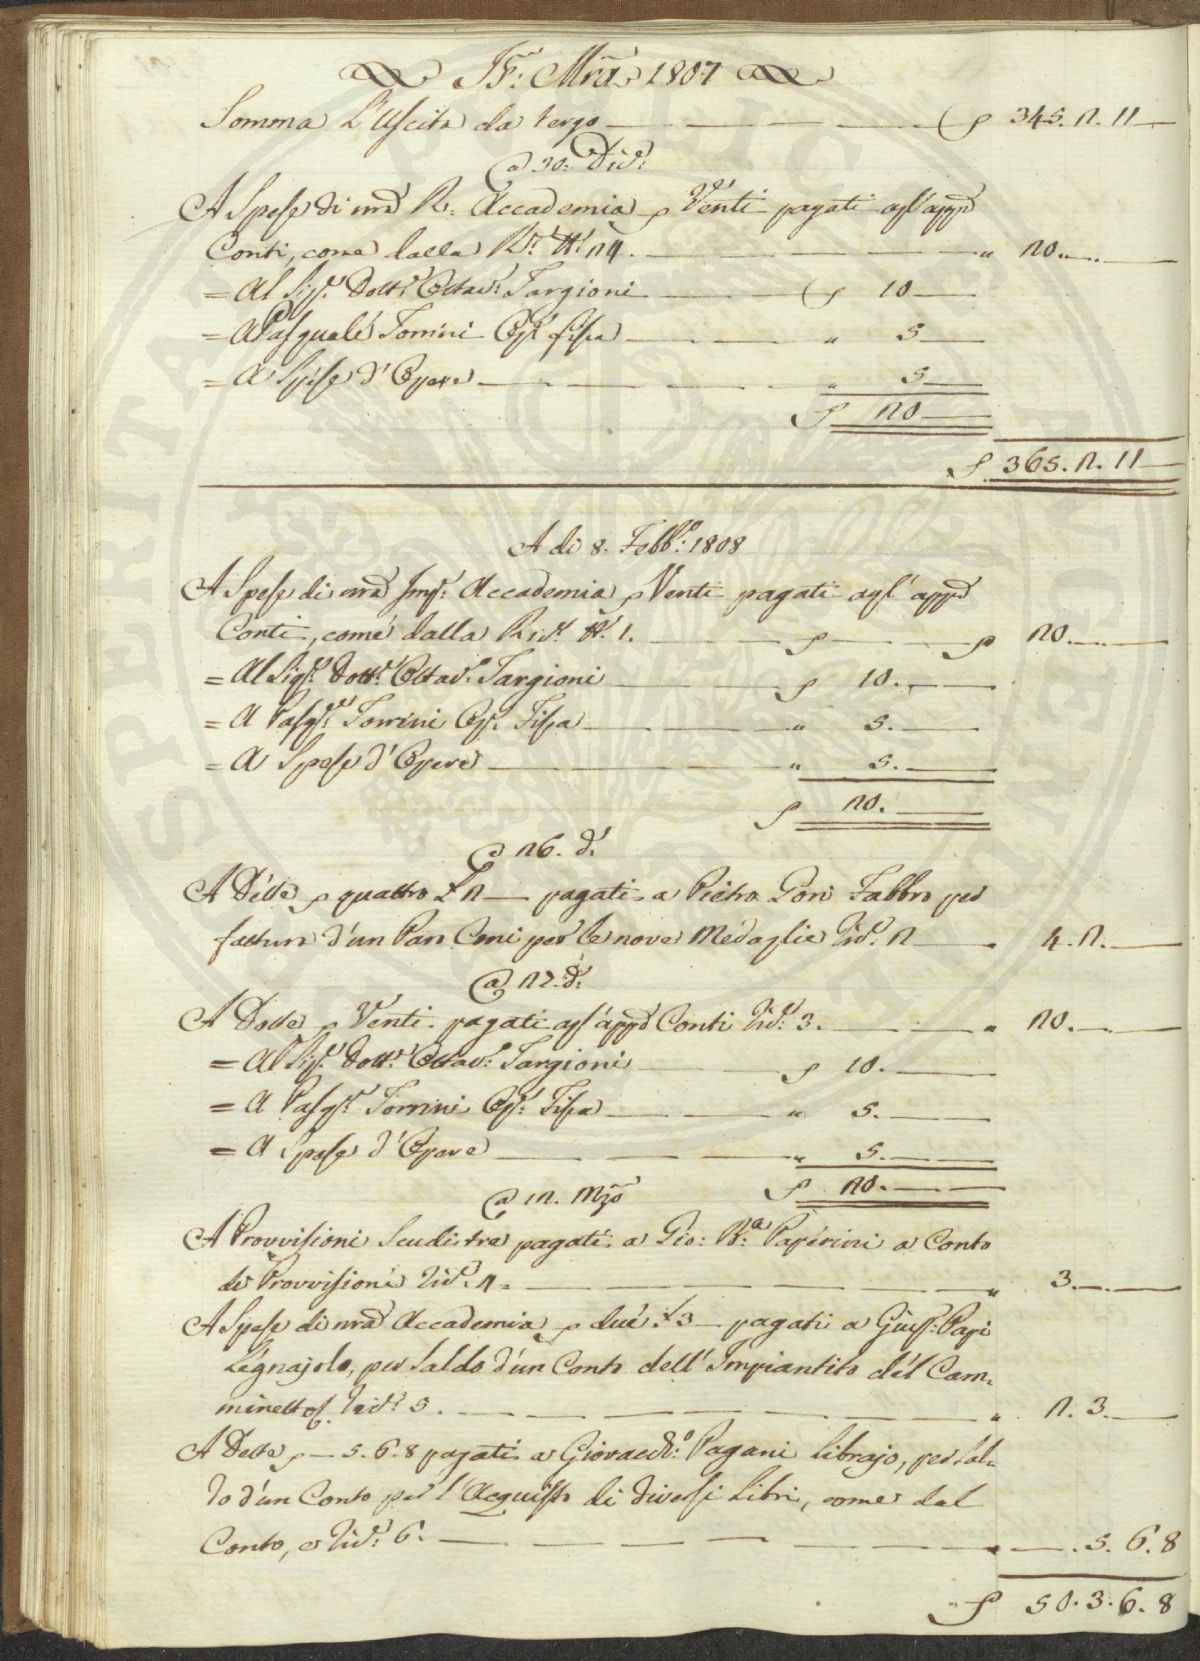 JF: Mrã 1807
Somma L'Uscita da tergo ƒ 345.2.11
a 30: Dic.e:
A Spese di nrã R: Accademia ƒ Venti pagati agl'appti
Conti, come dalla R.ta N.o 24. " 20.
= Al Sig.r Dott.r Ottav.o Targioni ƒ 10
= A Pasquale Torrini 5
= A Spese d'Opere " 5
ƒ 20
ƒ 365.2.11
A di 8. Febb.o: 1808
A Spese di nrã Imp.l: Accademia ƒ Venti pagati agl'appti
Conti, come dalla Ric.ta N.o 1. ƒ 20.
= Al Sig.r Dott.r Ottav.o Targioni ƒ 10.
= A Pasq.le Torrini " 5.
= A Spese d'Opere " 5.
ƒ 20.
a 26. d.o
A Dette ƒ quattro £ 2 pagati a Pietro Gori Fabbro per
fattura d'un Par Coni per le nove Medaglie Ric.ta 2 " 4.2.
a 27. d.o:
A Dette ƒ Venti pagati agl'appti Conti Ric.ta: 3. " 20.
= Al Sig.r Dott.r Ottav.o Targioni ƒ 10.
= A Pasq.le Torrini " 5.
= A Spese d'Opere " 5.
a 12. Mzõ ƒ 20.
A Provvisioni Scudi tre pagati a Gio: B.a Paperini a Conto
di Provvisioni Ric.ta 4. " 3.
A Spese di nrã Accademia ƒ due £ 3 pagati a Gius.e Papi
Legnajolo, per Saldo d'un Conto dell'Impiantito del Cam=
minetto Ric.ta 5. " 2.3.
A Dette ƒ — 5.6.8 pagati a Pagani Librajo, per Sal=
do d'un Conto per l'Acquisto di diversi Libri, come dal
Conto, e Ric.ta: 6. " — .5.6.8
ƒ 50.3.6.8